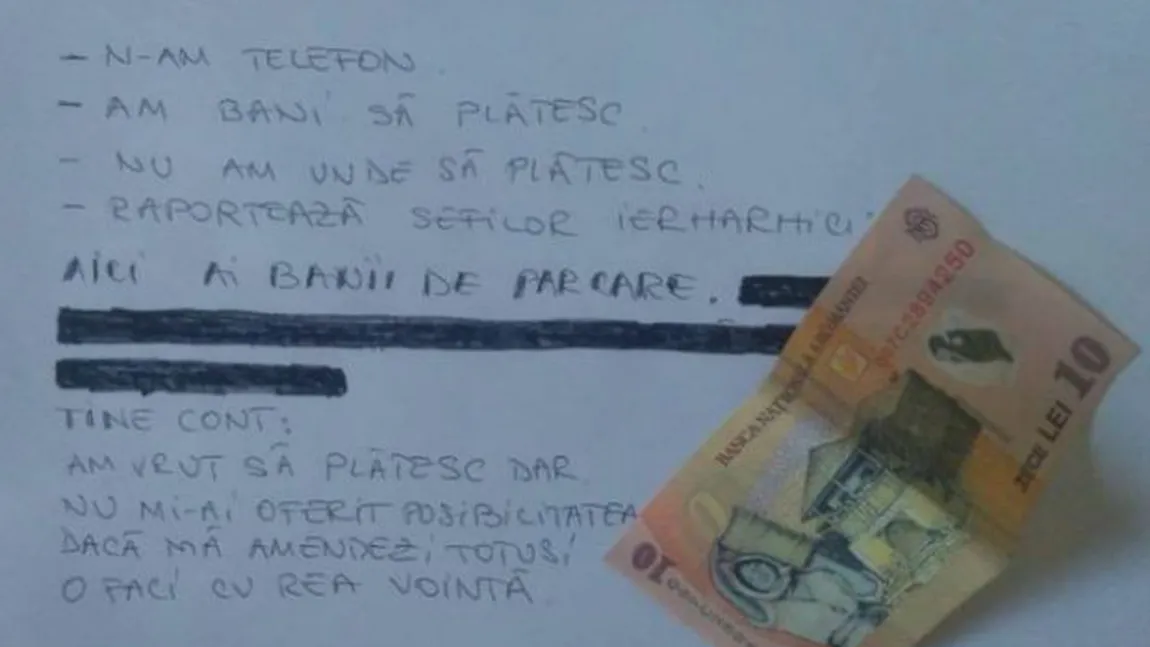 - N-AM TELEFON.
- AM BANI SĂ PLĂTESC.
- NU AM UNDE SĂ PLĂTESC.
- RAPORTEAZĂ SEFILOR IERHARHICI
AICI AI BANII DE PARCARE.
TINE CONT:
AM VRUT SĂ PLĂTESC DAR
NU MI-AI OFERIT POSIBILITATEA
DACĂ MĂ AMENDEZI TOTUSI
O FACI CU REA VOINTĂ
BANCA NAȚIONALĂ A ROMÂNIEI
ZECE LEI 10
10